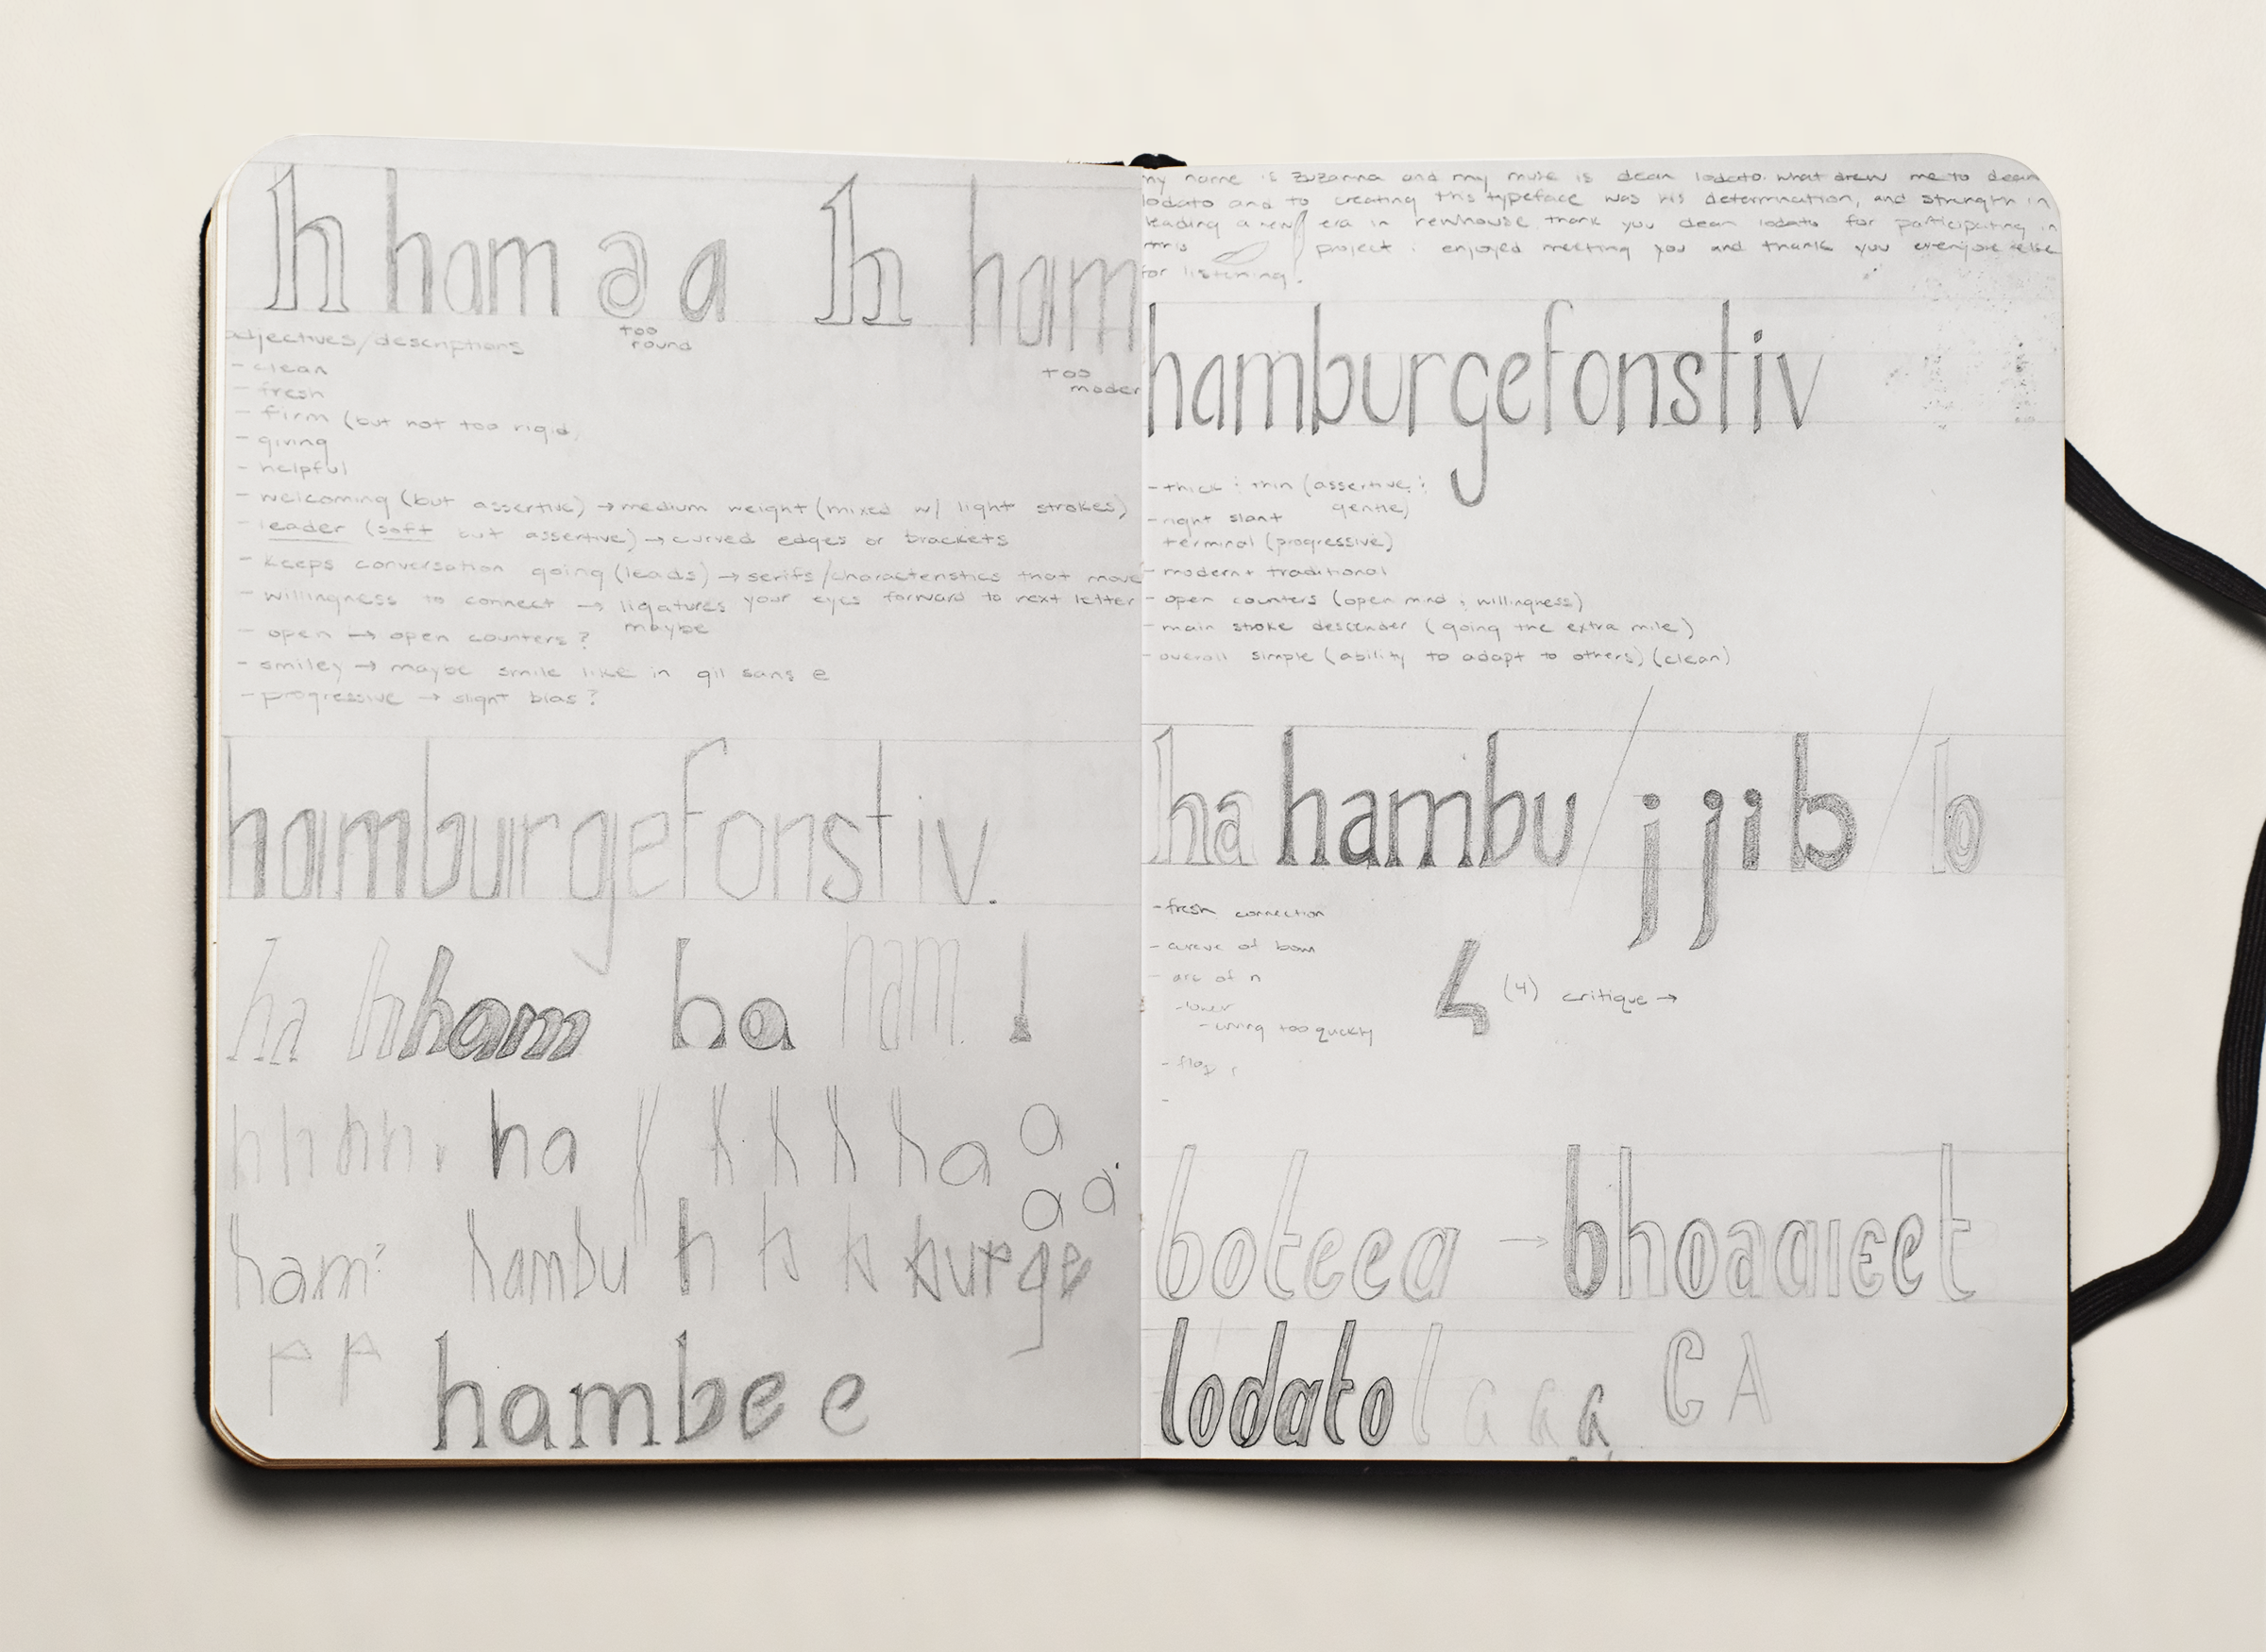 h ham a a h ham
too
round
too
moder
adjectives/descriptions
- clean
- fresh
- firm (but not too rigid)
- giving
- helpful
- welcoming (but assertive) → medium weight (mixed w/ light strokes)
- leader (soft but assertive) → curved edges or brackets
- keeps conversation going (leads) → serifs/characteristics that move
your eyes forward to next letter
- willingness to connect → ligatures
maybe
- open → open counters?
- smiley → maybe smile like in gil sans e
- progressive → slight bias?
hamburgefonstiv.
ha h ham ha ham l
h h h h ha h h h h ha a
a a
ham hambu h h h burge
hambe e
my name is zuzanna and my muse is dean lodato. what drew me to dean
lodato and to creating this typeface was his determination, and strength in
leading a new era in newhouse. thank you dean lodato for participating in
this project i enjoyed meeting you and thank you everyone else
for listening!
hamburgefonstiv
- thick : thin (assertive :
gentle)
- right slant
terminal (progressive)
- modern + traditional
- open counters (open mind , willingness)
- main stroke descender (going the extra mile)
- overall simple (ability to adapt to others) (clean)
ha hambu / j j i b / b
- fresh connection
- curve of bowl
- arc of n
- lower
- curving too quickly
- flag
(4) critique →
boteea → bhoaaieet
lodato l a a a G A